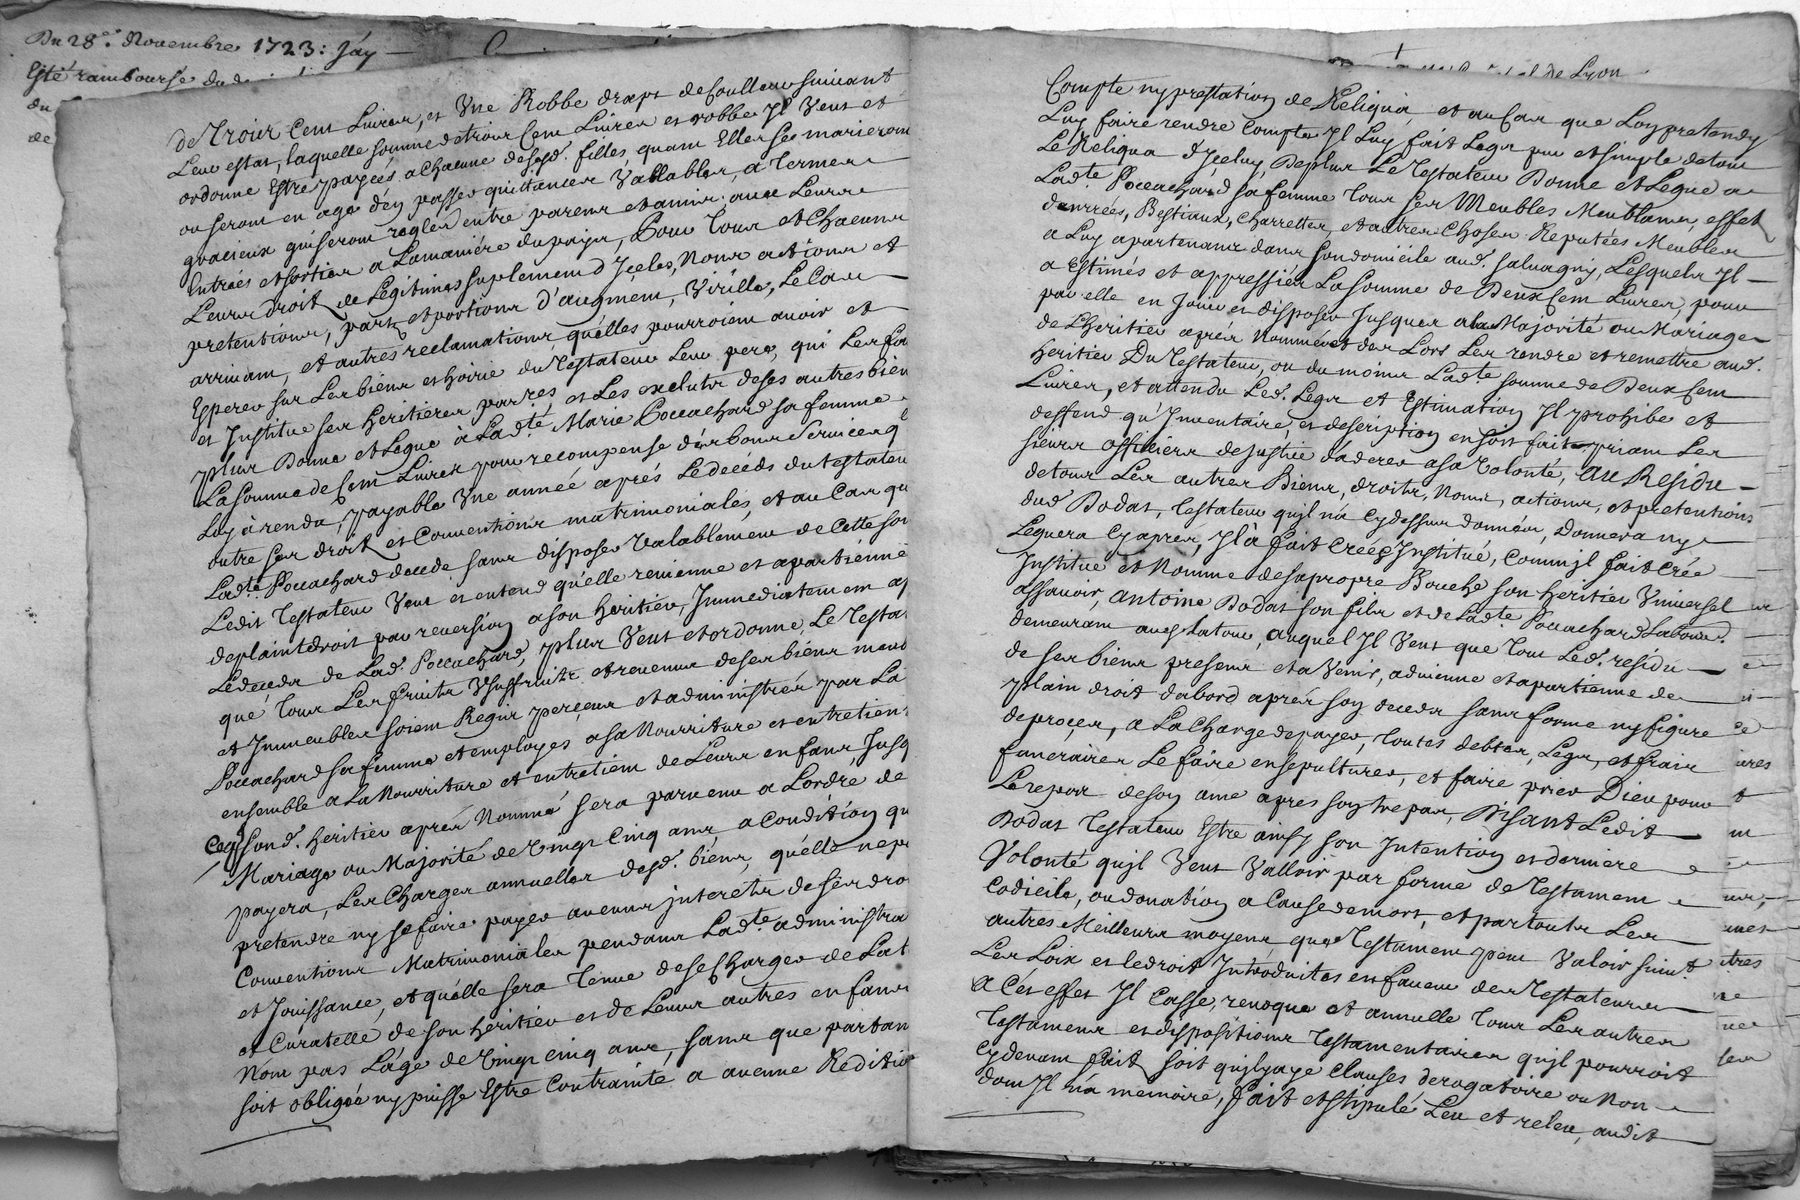 Du 28e. Novembre 1723: Jay
Esté rambourse du
du
de
de Trois Cent Livres, et Une Robbe draps de Coulleur suivant
Leur estat, laquelle somme de trois Cent Livres et robbe Il Veut et
ordonne Estre payées a Chacune desd. filles, quant Elles se marieront
ou seront en age d'en passer quittances Vallables, a Termes
gracieux qui seront reglés entre parens et amis, avec Leurs
Entrées et sorties a La maniére du pays, Pour Tous et Chacuns
Leurs droit de Légitimes suplement d'Icelles, Noms actions et
pretentions, part et portions d'augment, Virille, Le Cas
arrivant, et autres reclamations qu'elles pourroient avoir et
Esperer sur Les biens et hoirie du Testateur Leur pere, qui Les fa
et Institue ses heritieres par ies et Les exclutx de ses autres bien
plus Donne et Legue à Ladte. Marie Poccachard sa femme
La somme de Cent Livres pour recompense des bons Services q
Luy à rendu, payable Une année aprés Le decéds du testateu
outre ses droit et Conventions matrimoniales, et au Cas qu
Ladte. Poccachard decede sans disposer Valablement de Cette so
Ledit Testateur Veut et entend qu'elle revienne et apartienne
de plaint droit par reversion a son heritier, Immediatement ap
Le deceds de Lad. Poccachard, plus Veut et ordonne Le Testa
qué Tous Les fruits Usuffruits et revenus de ses biens meub
et Immeubles soient Regir perçeus et administrés par La
Poccachard sa femme et employes a sa Nourriture et entretien
ensemble a La Nourriture et entretient de Leurs enfans Jusq
ceqsond. heritier aprés Nommé sera parvenu a Lordre de
Mariage ou Majorité de Vingt Cinq ans, a condition qu
payera, Les Charges annuelles desd. biens, quélle ne p
pretendre ny se faire payer aucuns interets de ses dro
Conventions Matrimoniales pendans Ladte. administra
et Jouissance, et quélle sera Tenue des Charges de La t
et Curatelle de son heritier et de Leurs autres enfans
Nom pas Lâge de Vingt cinq ans, sans que partan
soit obligée ny puisse Estre Contrainte a aucune Reditio
de Lyon
Compte ny prestation de Reliqua, et au Cas que Lon pretendy
Luy faire rendre Compte Il Luy fait Legs pur et simple de tout
Le Reliqua d'Iceluy, De plus Le Testateur Donne et Legue a
Ladte. Poccachard sa femme Tous ses Meubles Meublans, effet
danrrées, Bestiaux, Charrettes, et autres Choses Reputées Meubles
a Luy apartenans dans son domicile aud. salvagny, Lesquels Il
a Estimés et appressiés La somme de Deux Cent Livres, pour
par elle en Jouir et disposer Jusques a la Majorité ou Mariage
de L'heritier aprés Nommé et dés Lors Les rendre et remettre aud.
heritier Du Testateur, ou du moins Ladte. somme de Deux Cent
Livres, et attendu Led. Legs et Estimation Il prohibe et
deffend qu'Inventaire, et description en soit fait priant Les
sieurs officiers de Justice d'aderer a sa Volonté, Au Residu
de tous Les autres Biens, droits, Noms, actions, et pretentions
dud Dodat, Testateur qu'il n'a Cy dessus donnés, Donnera ny
Leguera Cy apres, Il à fait Créé et Institué, Comm Il fait Crée
Institue et Nomme de sa propre Bouche son heritier Universel
assavoir, antoine Dodat son fils et de Ladte. Poccachard Labour.
demeurant aud. latour, auquel Il Veut que Tout Led. residu
de ses biens presens et a Venir, advienne et apartienne de
plain droit dabord aprés son decéds sans forme ny figure
de proçes, a La Charge de payer, Toutes debtes, Legs, et frais
funeraires Le faire ensepulturer, et faire prier Dieu pour
Le repos de son ame apres son trepas, Disant Ledit
Dodat Testateur Estre ainsy son Intention et derniere
Volonté qu'il Veut Valloir par forme de Testament
Codicile, ou donation a Cause de mort, et par touts Les
autres Meilleurs moyens que Testament peut Valoir suivt.
Les Loix et le droit Introduites en faveur des Testateurs
A Cét effet Il Casse, revoque et annulle Tous Les autres
Testamens et dispositions Testamentaires qu'il pourroit
cy devant fait soit qu'il y aye Clauses derogatoire ou Non
dont Il n'a memoire, fait et stipulé Leu et releu, audit